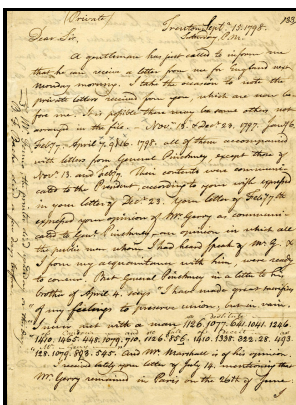 (Private)
183
Trenton Sept. 15. 1798.
Saturday P.M.
Dear Sir,
A gentleman has just called to inform me
that he can receive a letter from me for England next
monday morning. I take the occasion to note the
private letters received from you, which are now be-
fore me. It is possible there may be some others not
arranged in the file. - Novr. 13. & Decr. 23. 1797. Jany. 6
Feby. 7. April 7. & 16. 1798. all of them accompanied
with letters from General Pinckney except those of
Novr. 13. and Feby. 7. Their contents were communi-
cated to the President, according to your wish expressed
in your letter of Decr. 23. Your letter of Feby. 7th
expressed your opinion of Mr. Gerry as communi-
cated to Genl. Pinckney - an opinion in which all
the public men whom I had heard speak of Mr. G. &
I from my acquaintance with him, were ready
to concur. But General Pinckney in a letter to his
brother of April 4. says "I have made great sacrifices
of my feelings to preserve union, but in vain.
I never met with a man 1126. 1077. 641. 1041. 1246.
1410. 1465. 448. 1079. 710. 1126. 856. 1410. 1338. 322. 28. 493.
128. 1079. 893. 545. and Mr. Marshall is of his opinion.
I received lately your letter of July 14. mentioning that
Mr. Gerry remained in Paris on the 26th of June.